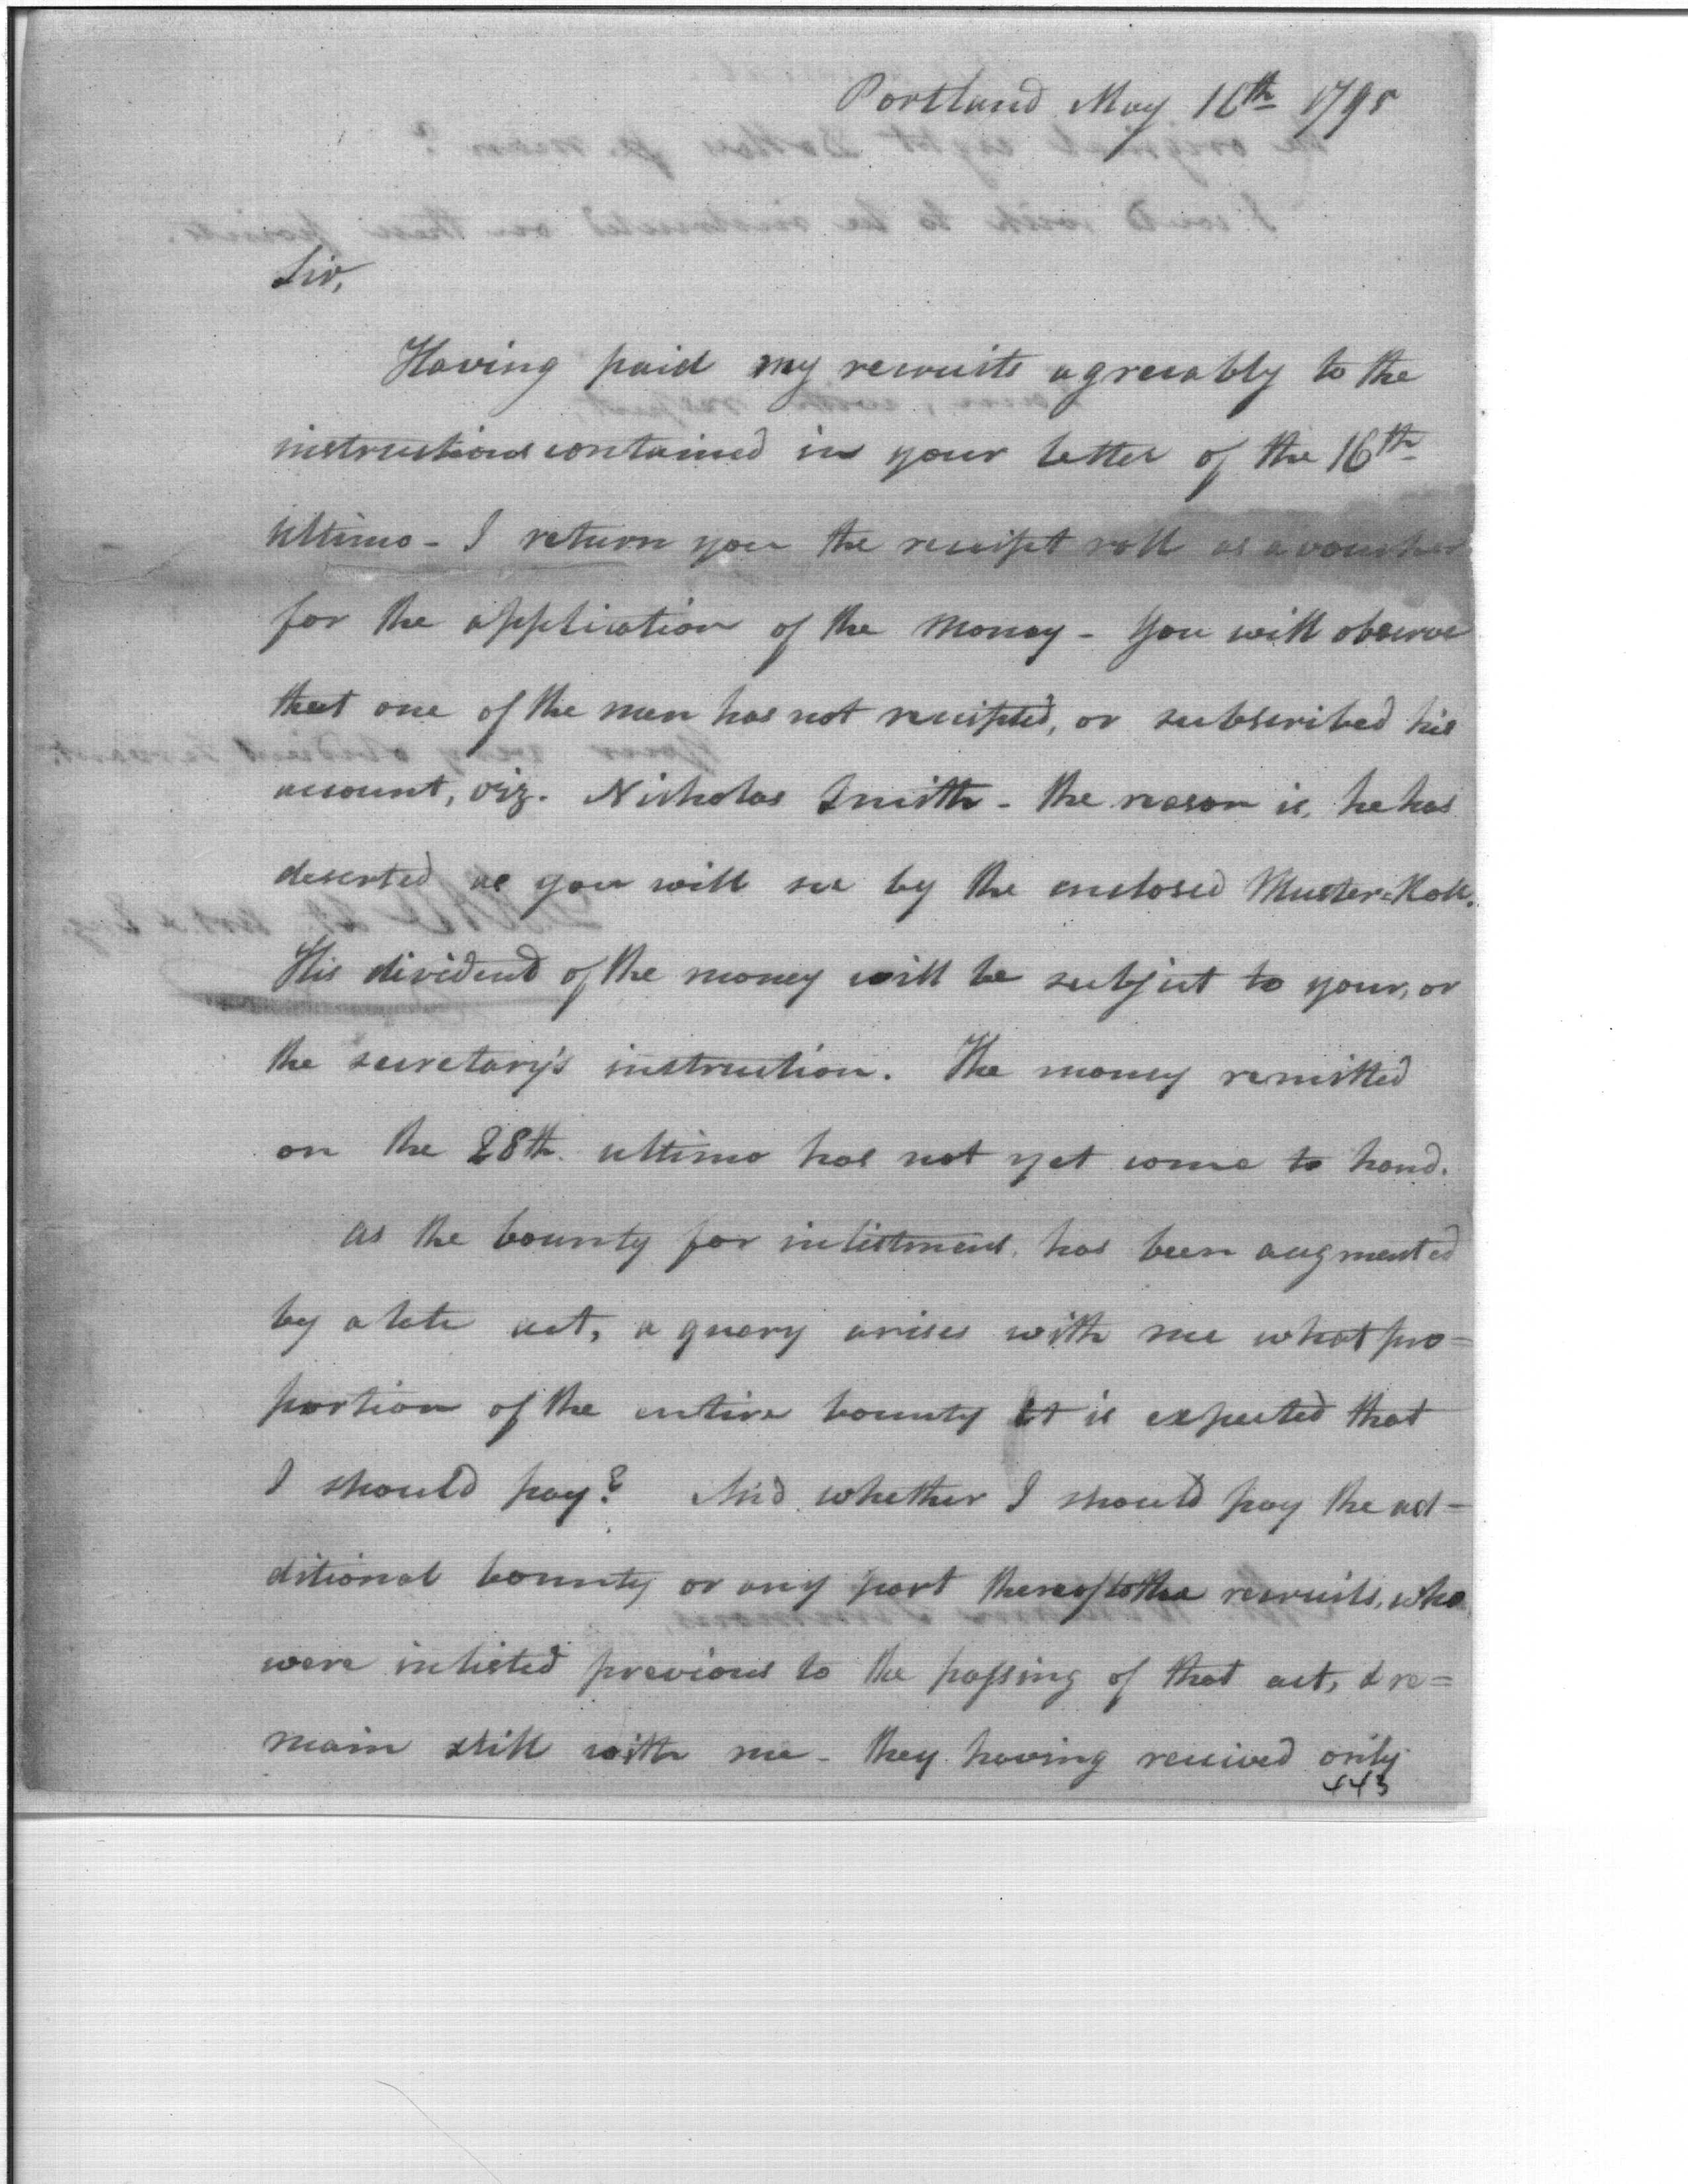 Portland May 16th 1795
Sir,
Having paid my recruits agreeably to the
instructions contained in your letter of the 16th
ultimo - I return you the receipt roll as a voucher
for the application of the money - You will observe
that one of the men has not receipted, or subscribed his
account, viz. Nicholas Smith - the reason is, he has
deserted as you will see by the enclosed Muster-Roll.
His dividend of the money will be subject to your, or
the secretary's instruction. The money remitted
on the 28th ultimo has not yet come to hand.
As the bounty for inlistment has been augmented
by a late act, a query arises with me what pro=
portion of the entire bounty it is expected that
I should pay? And whether I should pay the ad-
ditional bounty or any part thereof to the recruits, who
were inlisted previous to the passing of that act, & re=
main still with me - they having received only
443